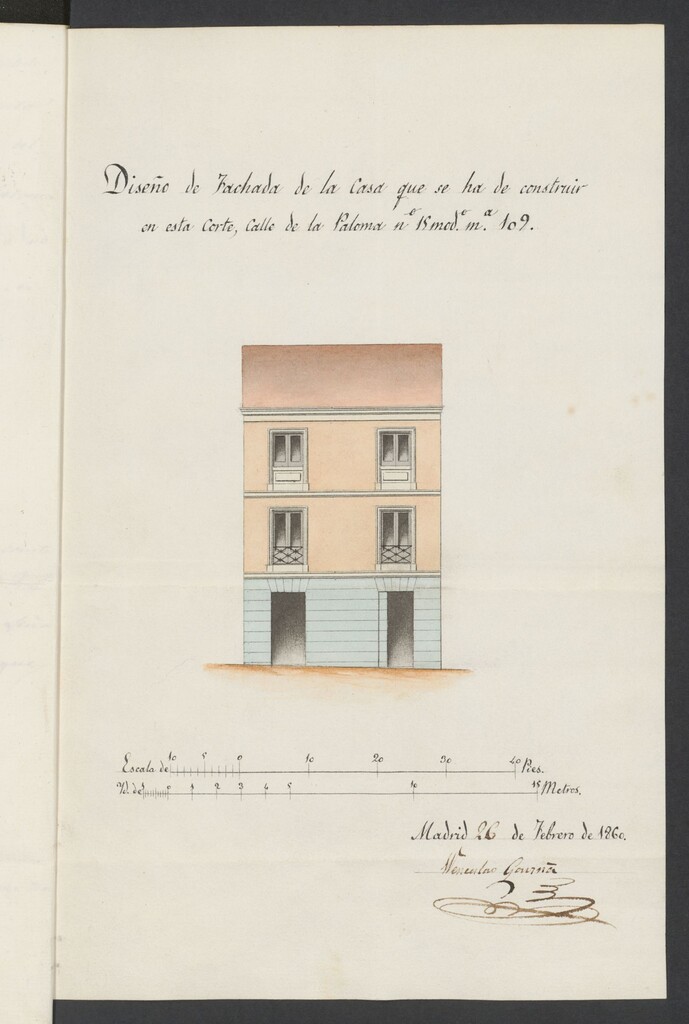 Diseño de Fachada de la Casa que se ha de construir
en esta Corte, Calle de la Paloma nº 15 modº mª 109.
Escala de 10 5 0 10 20 30 40 Pies.
Yd. de 0 1 2 3 4 5 10 15 Metros.
Madrid 26 de Febrero de 1860.
Wenceslao Gaviña